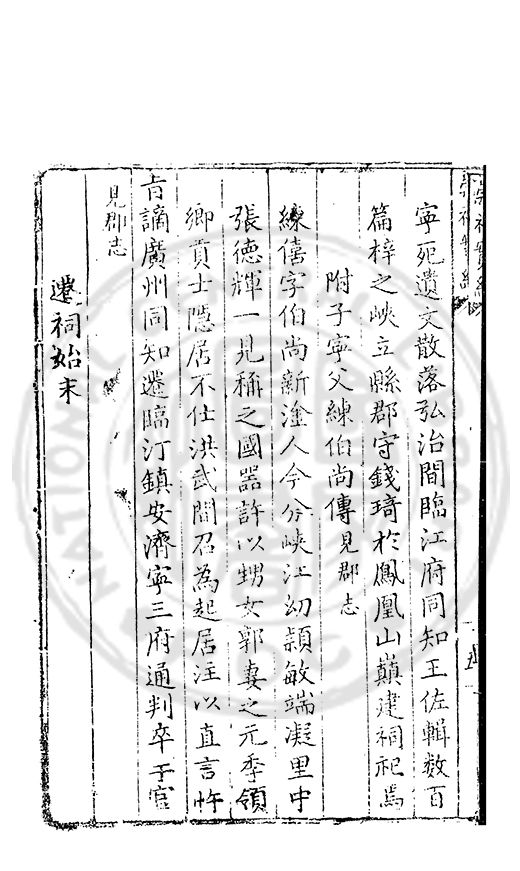 寧死遺文散落弘治間臨江府同知王佐輯數百
篇梓之峽立縣郡守錢琦於鳳凰山巔建祠祀焉
附子寧父練伯尚傳見郡志
練僖字伯尚新淦人今分峽江幼頴敏端凝里中
張德輝一見稱之國器許以甥女郭妻之元季領
鄉貢士隱居不仕洪武間召為起居注以直言忤
㫖謫廣州同知遷臨汀鎮安濟寧三府通判卒于官
見郡志
遷祠始末